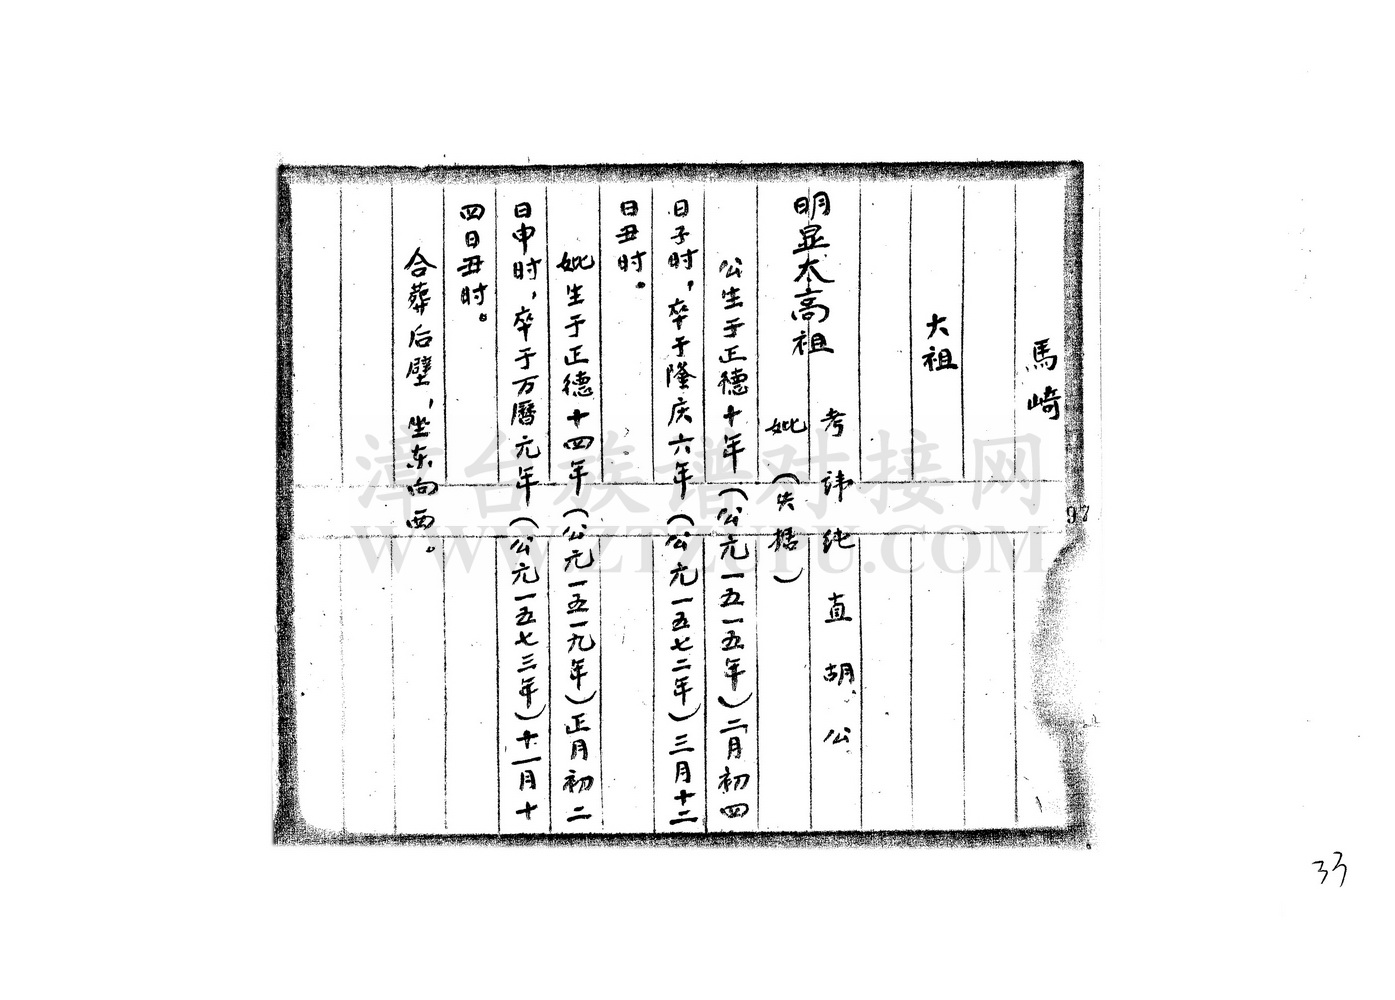 馬崎
大祖
明显太高祖 考 讳纯直胡公
妣（失据）
公生于正德十年（公元一五一五年）二月初四
日子时，卒于隆庆六年（公元一五七二年）三月十二
日丑时。
妣生于正德十四年（公元一五一九年）正月初二
日申时，卒于万曆元年（公元一五七三年）十一月十
四日丑时。
合葬后壁，坐东向西。
97
33
漳台族谱对接网
WWW.ZTZUPU.COM